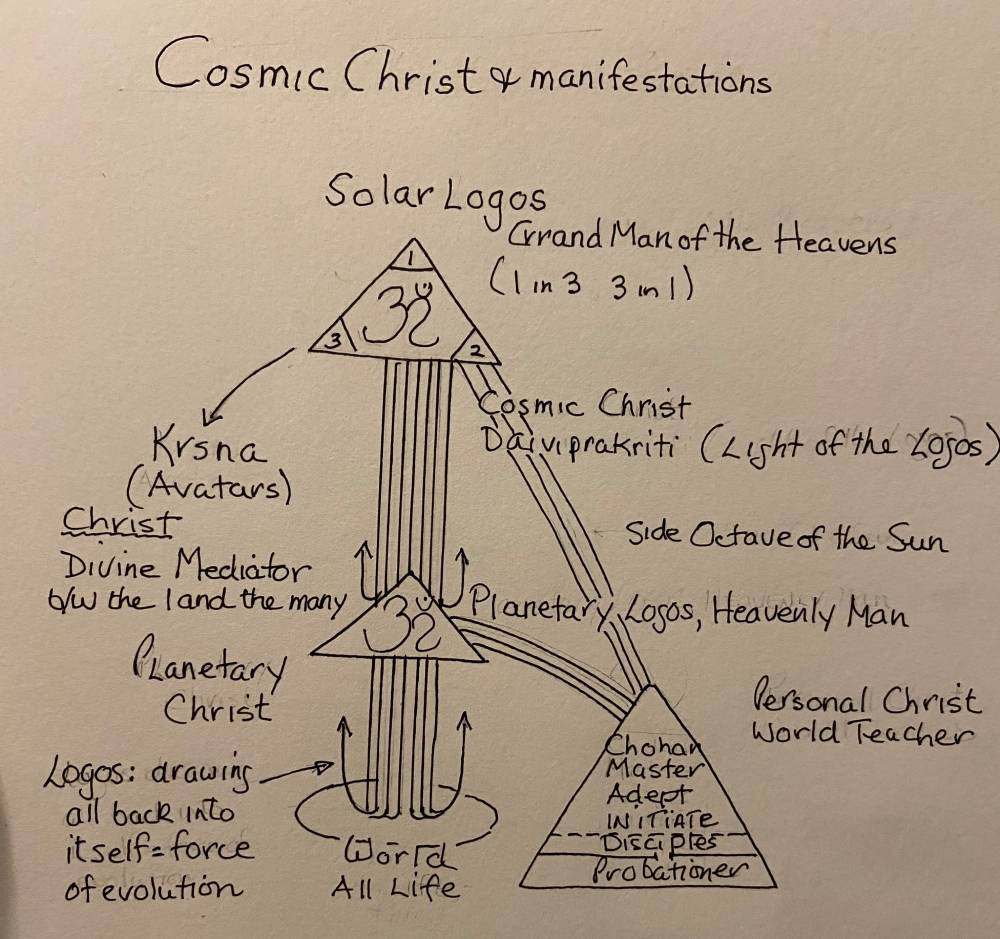 Cosmic Christ & manifestations
Solar Logos
Grand Man of the Heavens
(1 in 3 3 in 1)
1
ॐ
3
2
Cosmic Christ
Daiviprakriti (Light of the Logos)
Krsna
(Avatars)
Christ
Divine Mediator
b/w the 1 and the many
Side Octave of the Sun
ॐ
Planetary Logos, Heavenly Man
Planetary
Christ
Personal Christ
World Teacher
Logos: drawing
all back into
itself = force
of evolution
World
All Life
Chohan
Master
Adept
INITIATE
Disciples
Probationer